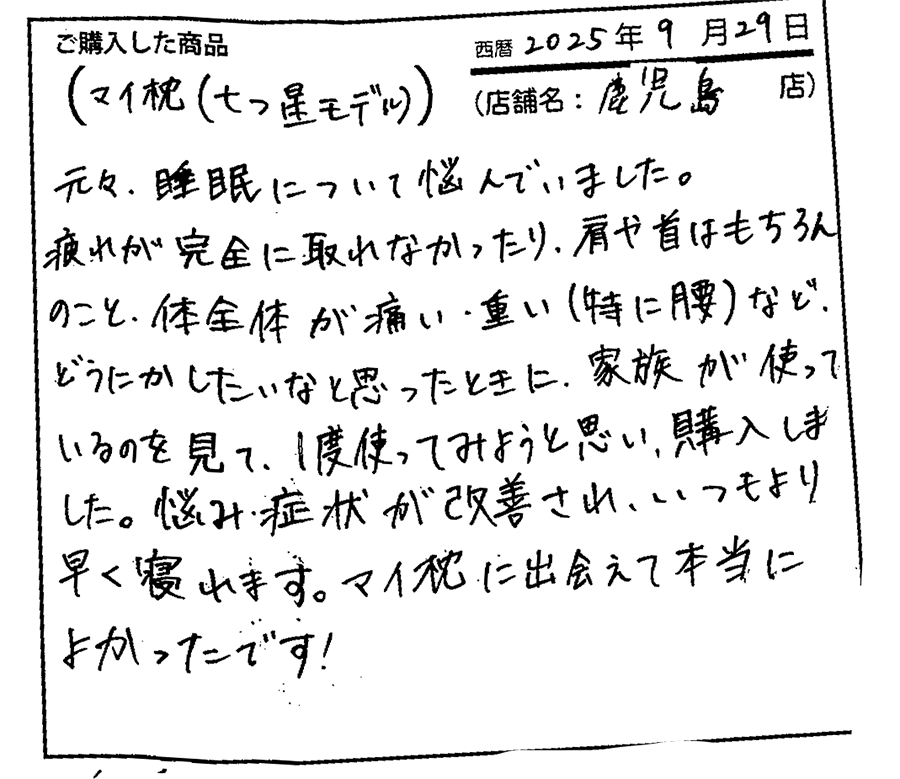 ご購入した商品
西暦 2025年 9月29日
(マイ枕(七つ星モデル))
(店舗名: 鹿児島 店)
元々、睡眠について悩んでいました。
疲れが完全に取れなかったり、肩や首はもちろん
のこと、体全体が痛い・重い(特に腰)など、
どうにかしたいなと思ったときに、家族が使って
いるのを見て、1度使ってみようと思い、購入しま
した。悩み・症状が改善され、いつもより
早く寝れます。マイ枕に出会えて本当に
よかったです!